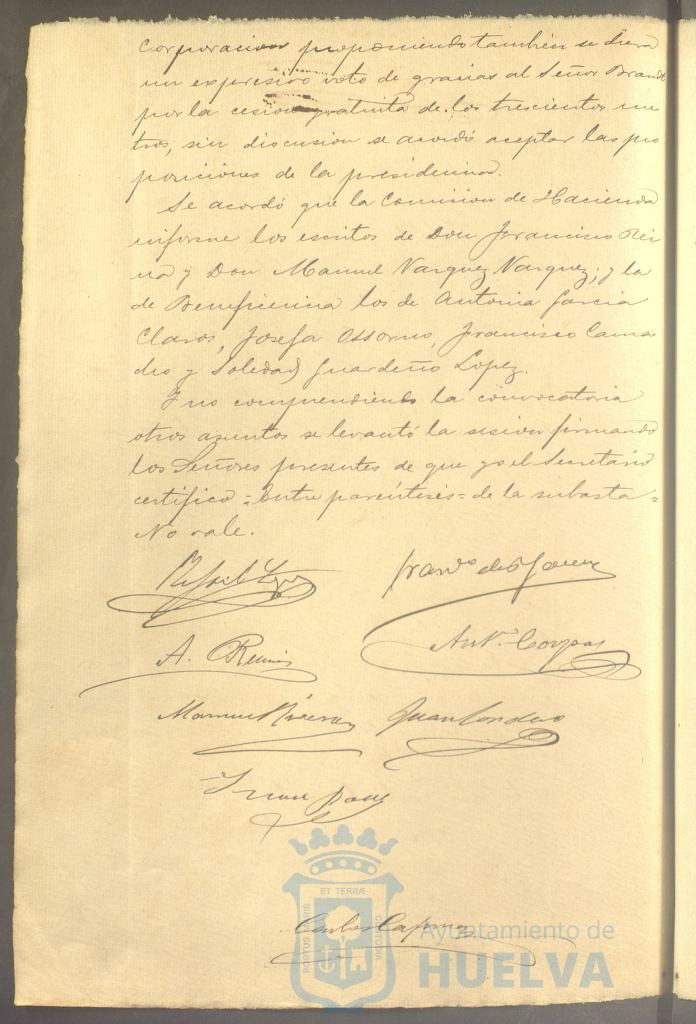 Corporacion proponiendo tambien se diera
un expresivo voto de gracias al Señor Brandt
por la cesion gratuita de los trescientos me
tros, sin discusion se acordó aceptar las pro
posiciones de la presidencia.
Se acordó que la Comision de Hacienda
informe los escritos de Don Francisco Rei
na y Don Manuel Vazquez Vazquez; y la
de Beneficencia los de Antonia Garcia
Claros, Josefa Ossorno, Francisco Cama
cho y Soledad Guardeño Lopez.
Y no comprendiendo la convocatoria
otros asuntos se levantó la sesion firmando
los Señores presentes de que yo el Secretario
certifico = Entre paréntesis = de la subasta =
No vale.
Rafael Lopez
Fran.co de
A.
Ant.o Corpas
Manuel Rivera
Juan Cordero
Juan
ET TERRÆ
PORTUS MARIS
CUSTODIA
Ayuntamiento de
HUELVA